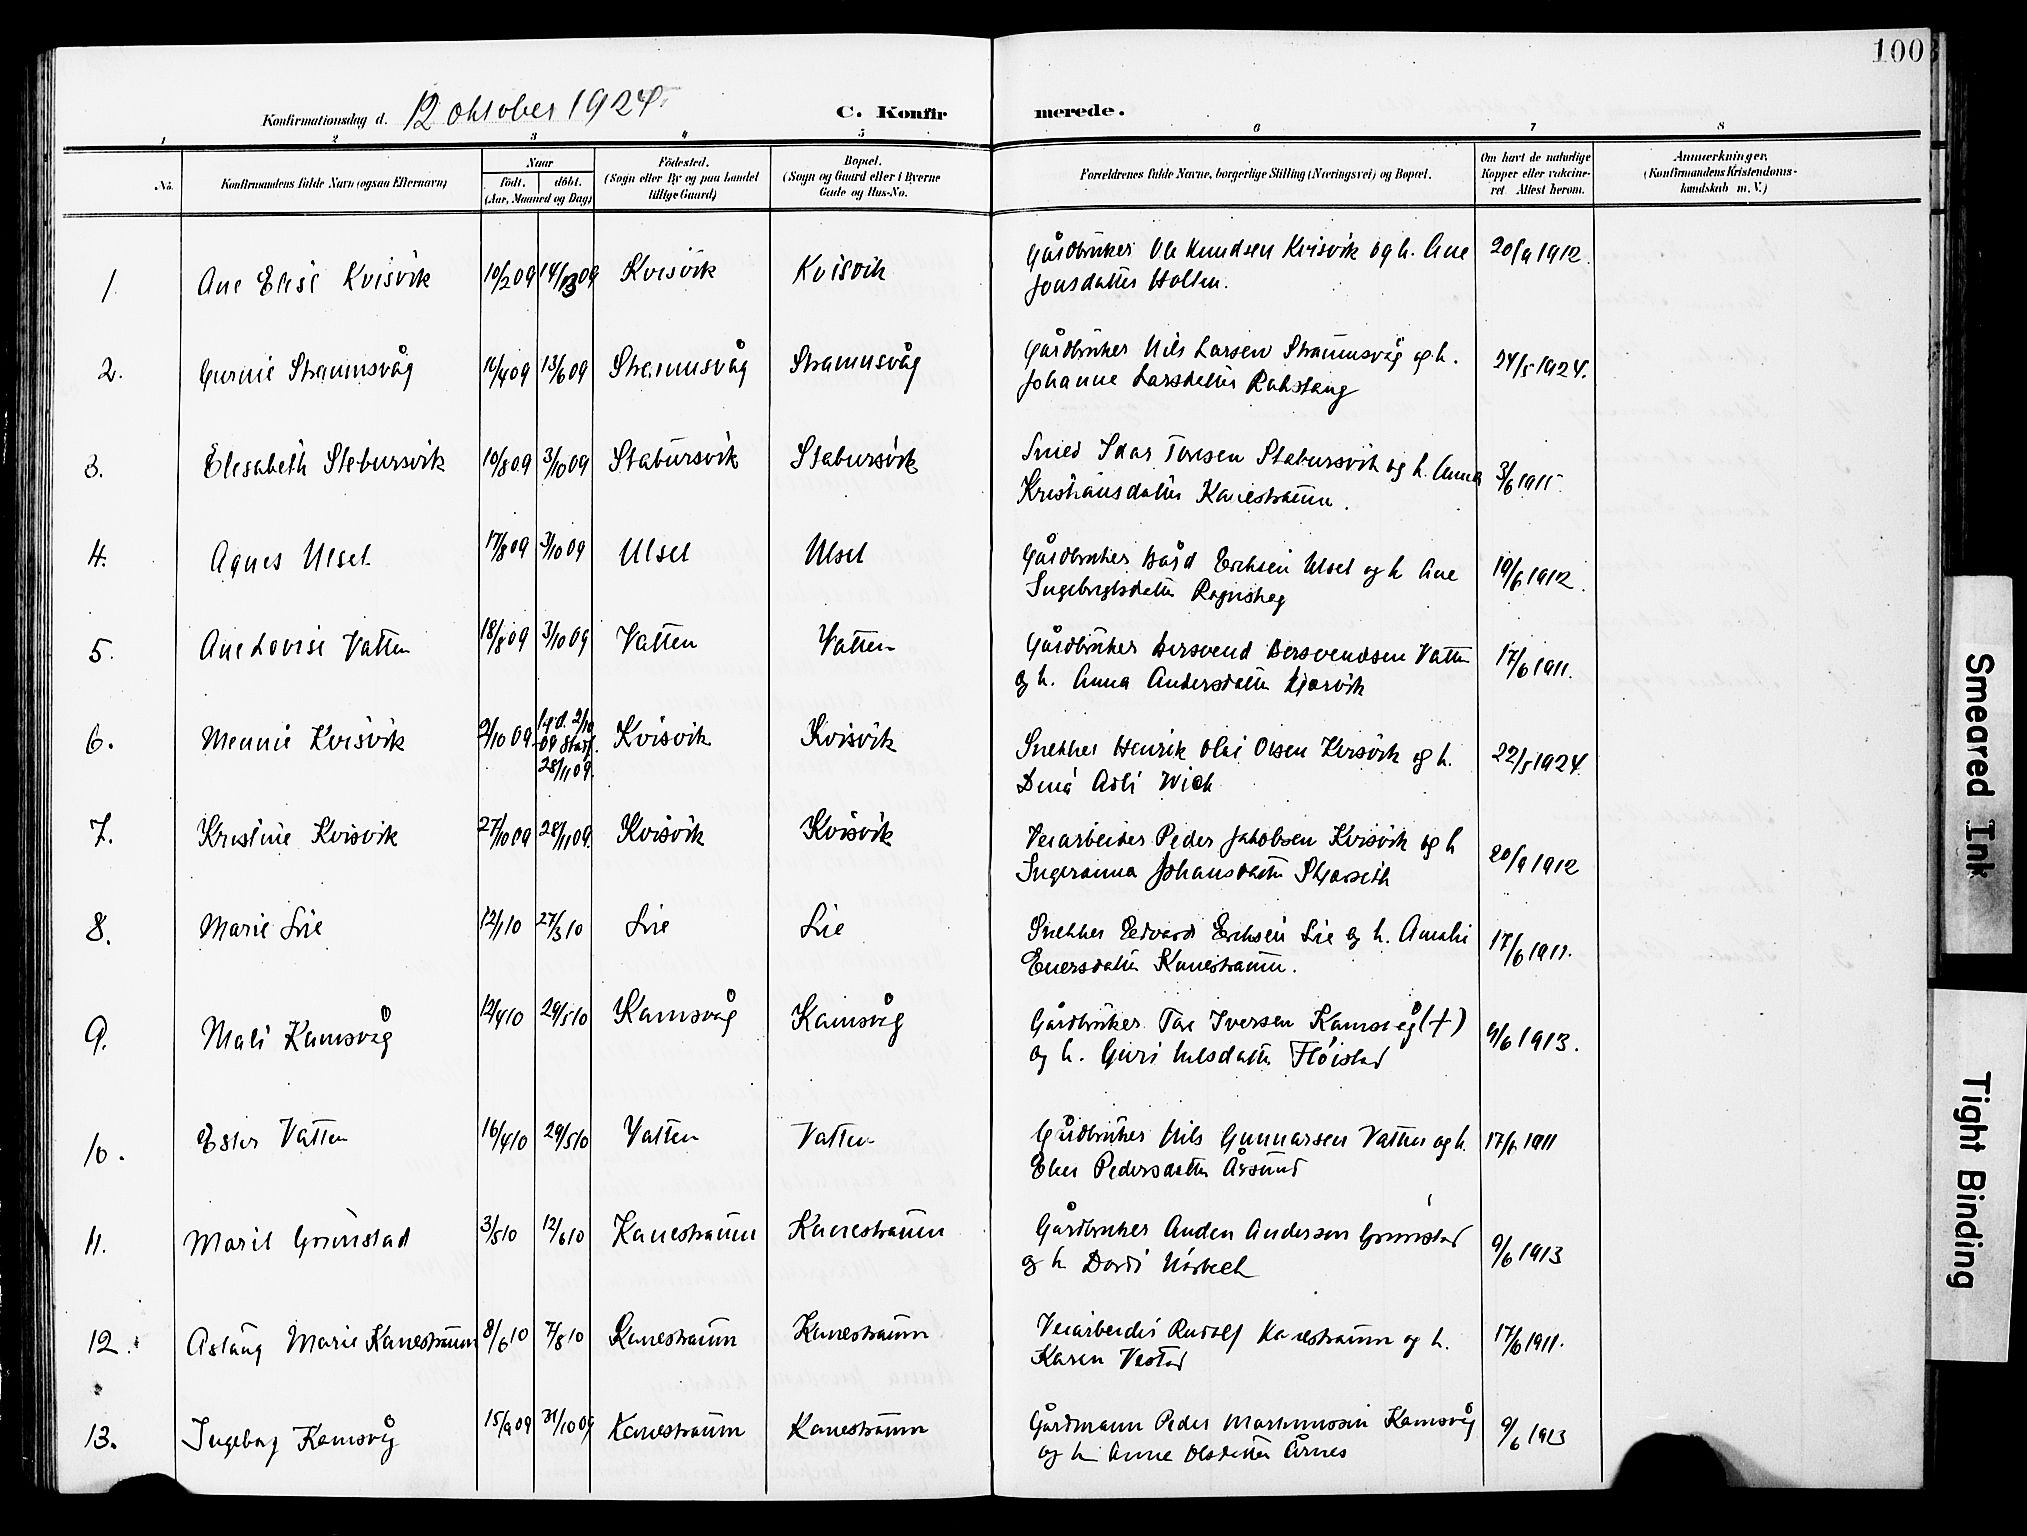 100
Konfirmationsdag d. 12 oktober 1924.
C. Konfirmerede.
1 2 3 4 5 6 7 8
No.
Konfirmandens fulde Navn (ogsaa Efternavn)
Naar
født. døbt.
(Aar, Maaned og Dag)
Fødested.
(Sogn eller By og paa Landet
tillige Gaard)
Bopæl.
(Sogn og Gaard eller i Byerne
Gade og Hus-No.
Forældrenes fulde Navne, borgerlige Stilling (Næringsvei) og Bopæl.
Om havt de naturlige
Kopper eller vakcine-
ret. Attest herom.
Anmærkninger.
(Konfirmandens Kristendoms-
kundskab m. V.)
1. Ane Elise Kvisvik 10/2 09 14/3 09 Kvisvik Kvisvik Gårdbruker Ole Knudsen Kvisvik og h. Ane 20/9 1912.
Jonsdatter Holten.
2. Gurine Straumsvåg 16/4 09 13/6 09 Straumsvåg Straumsvåg Gårdbruker Nils Larsen Straumsvåg og h. 24/5 1924.
Johanne Larsdatter
3. Elisabeth Stabursvik 10/8 09 3/10 09 Stabursvik Stabursvik Smed Idar Toresen Stabursvik og h. Anna 3/6 1911.
Kristiansdatter Kanestraum.
4. Agnes Ulset 17/8 09 3/10 09 Ulset Ulset Gårdbruker Bård Eriksen Ulset og h Ane 19/6 1912.
Ingebrigtsdatter
5. Ane Lovise Vatten 18/8 09 3/10 09 Vatten Vatten Gårdbruker Bersvend Bersvendsen Vatten 17/6 1911.
og h. Anna Andersdatter
6. Mennie Kvisvik 2/10 09 hjd. 2/10
09 Stadf.
28/11 09. Kvisvik Kvisvik Snekker Henrik Olai Olsen Kvisvik og h. 22/5 1924.
Wick
7. Kristine Kvisvik 27/10 09 28/11 09. Kvisvik Kvisvik Veiarbeider Peder Jakobsen Kvisvik og h 20/9 1912
Ingeranna Johansdatter
8. Marie Lie 12/1 10 27/3 10 Lie Lie Snekker Edvard Eriksen Lie og h. Amalie 17/6 1911.
Einersdatter Kanestraum.
9. Mali Kamsvåg 12/4 10 29/5 10 Kamsvåg Kamsvåg Gårdbruker Tore Iversen Kamsvåg (†) 9/6 1913.
og h. Guri Nilsdatter Fløistad
10. Ester Vatten 16/4 10 29/5 10 Vatten Vatten Gårdbruker Nils Gunnarsen Vatten og h. 17/6 1911
Elen Pedersdatter Årsund
11. Marit Grimstad 3/5 10 12/6 10 Kanestraum Kanestraum Gårdbruker Anders Anderson Grimstad 9/6 1913
og h Dordi
12. Aslaug Marie Kanestraum 8/6 10 7/8 10 Kanestraum Kanestraum Veiarbeider Rudolf Kanestraum og h. 17/6 1911.
Karen Vestad
13. Ingeborg Kamsvåg 15/9 09 31/10 09 Kanestraum Kanestraum Gårdmann Peder Martinussen Kamsvåg 9/6 1913
og h Anne Olsdatter Årnes
Smeared Ink
Tight Binding